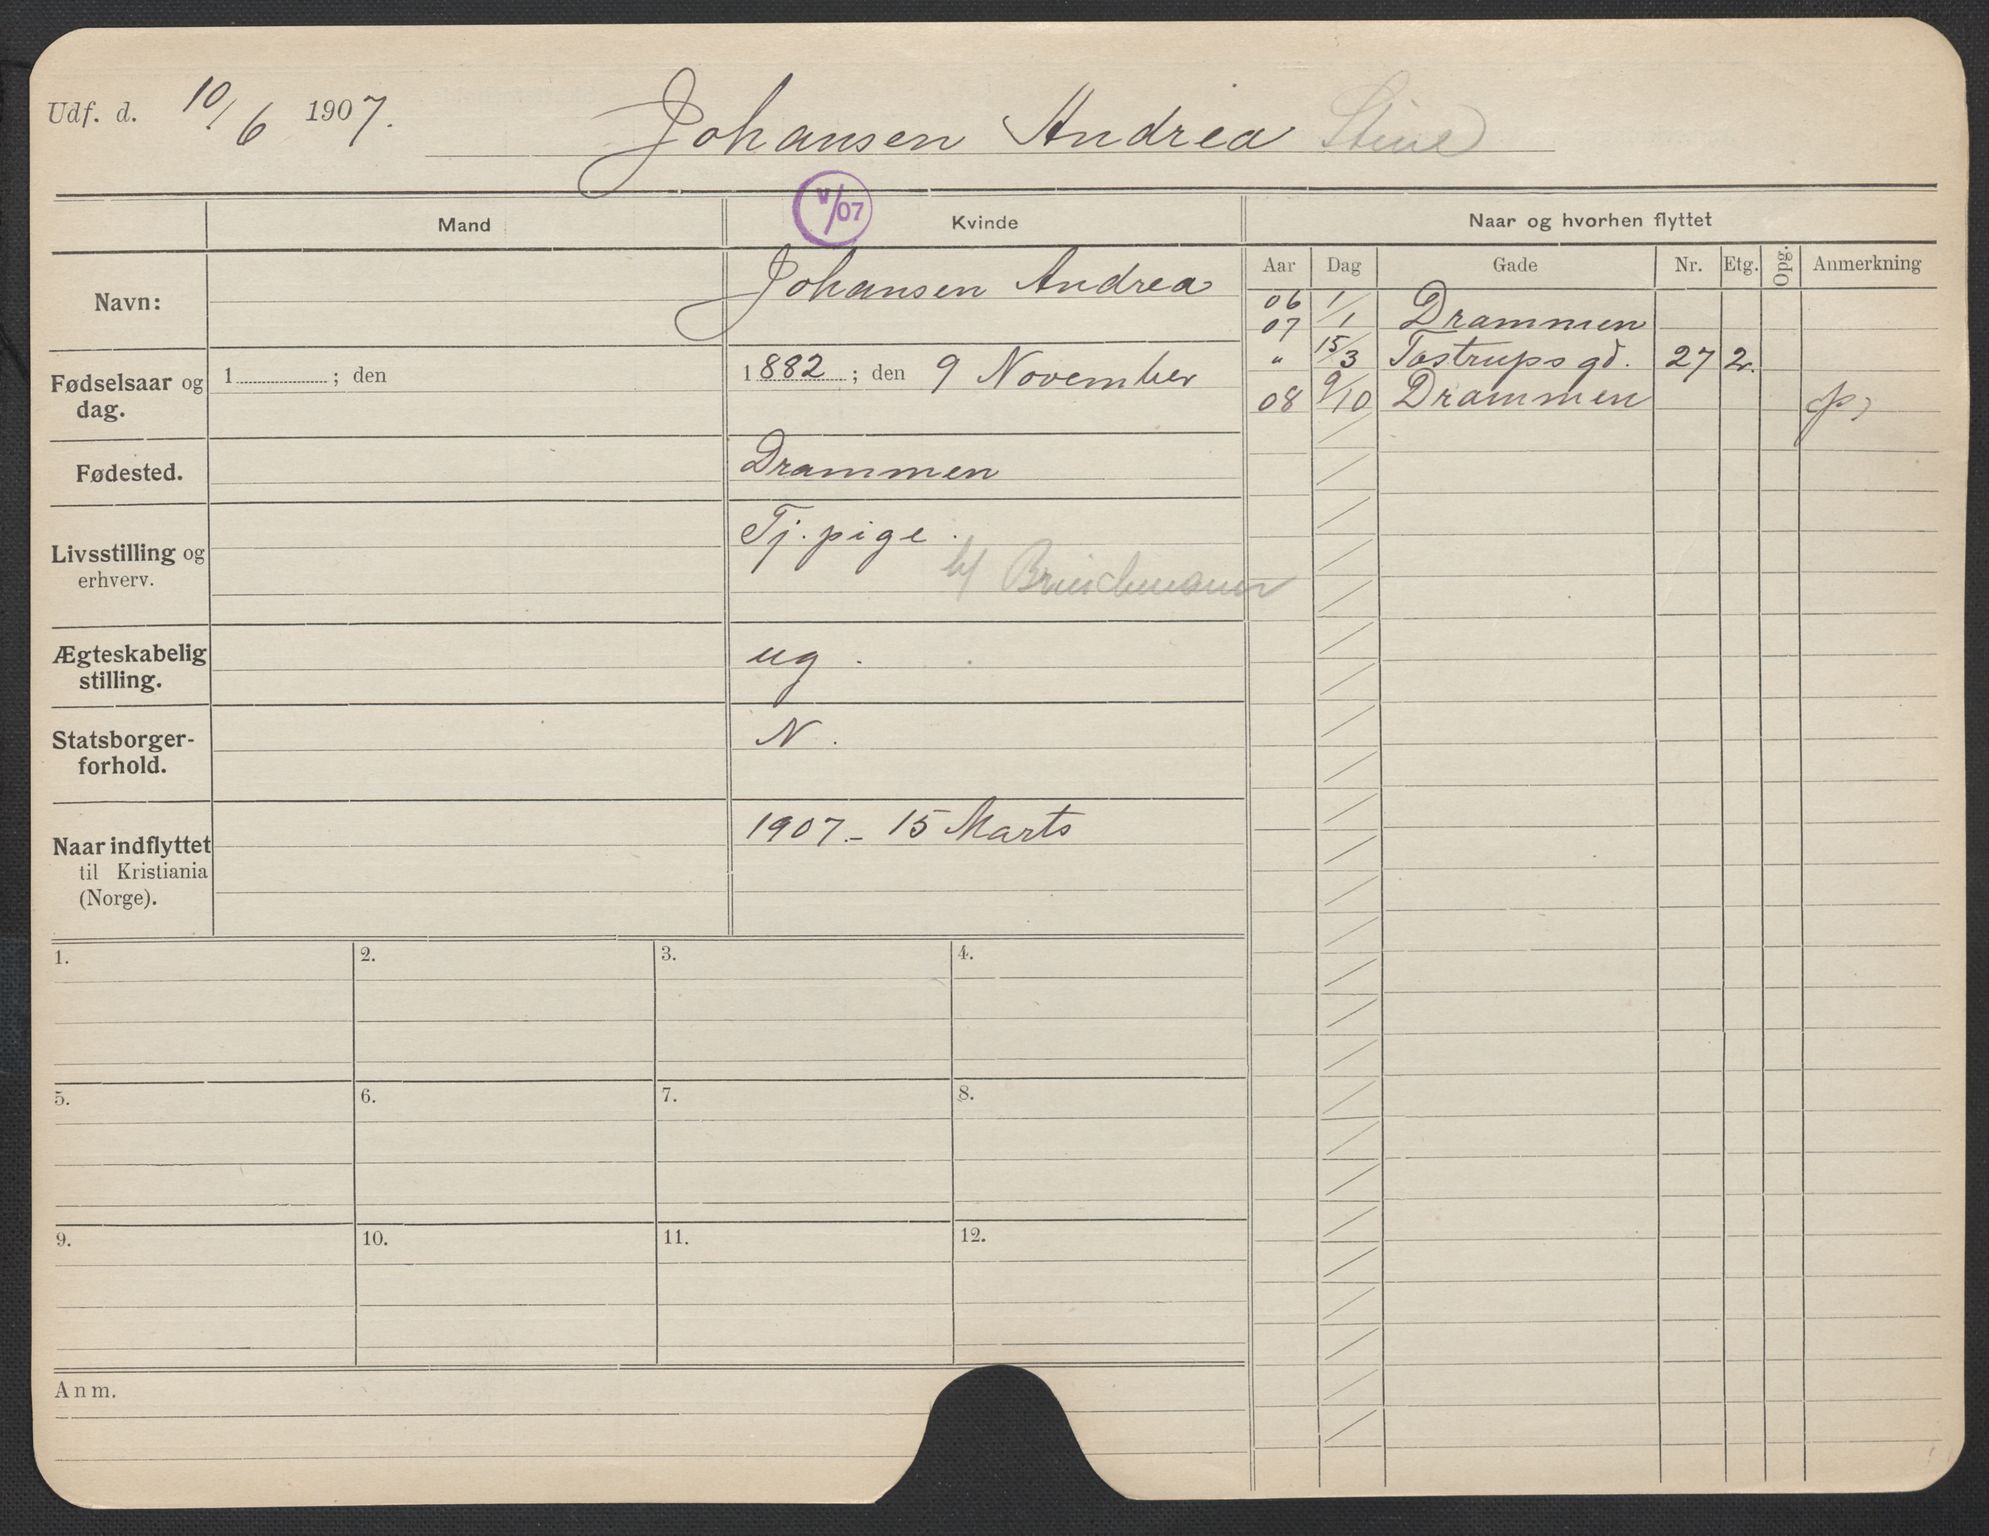 Udf. d. 10/6 1907. Johansen Andrea Stine
V/07
Mand
Kvinde
Naar og hvorhen flyttet
Navn:
Johansen Andrea
Fødselsaar og dag.
1 ; den
1882 ; den 9 November
Fødested.
Drammen
Livsstilling og erhverv.
Tj. pige.
Ægteskabelig stilling.
ug.
Statsborger-
forhold.
N.
Naar indflyttet
til Kristiania
(Norge).
1907 – 15 Marts
Aar Dag Gade Nr. Etg. Opg. Anmerkning
06 1/1
07 Drammen
" 15/3 Tostrups gd. 27 2.
08 9/10 Drammen
1. 2. 3. 4.
5. 6. 7. 8.
9. 10. 11. 12.
Anm.